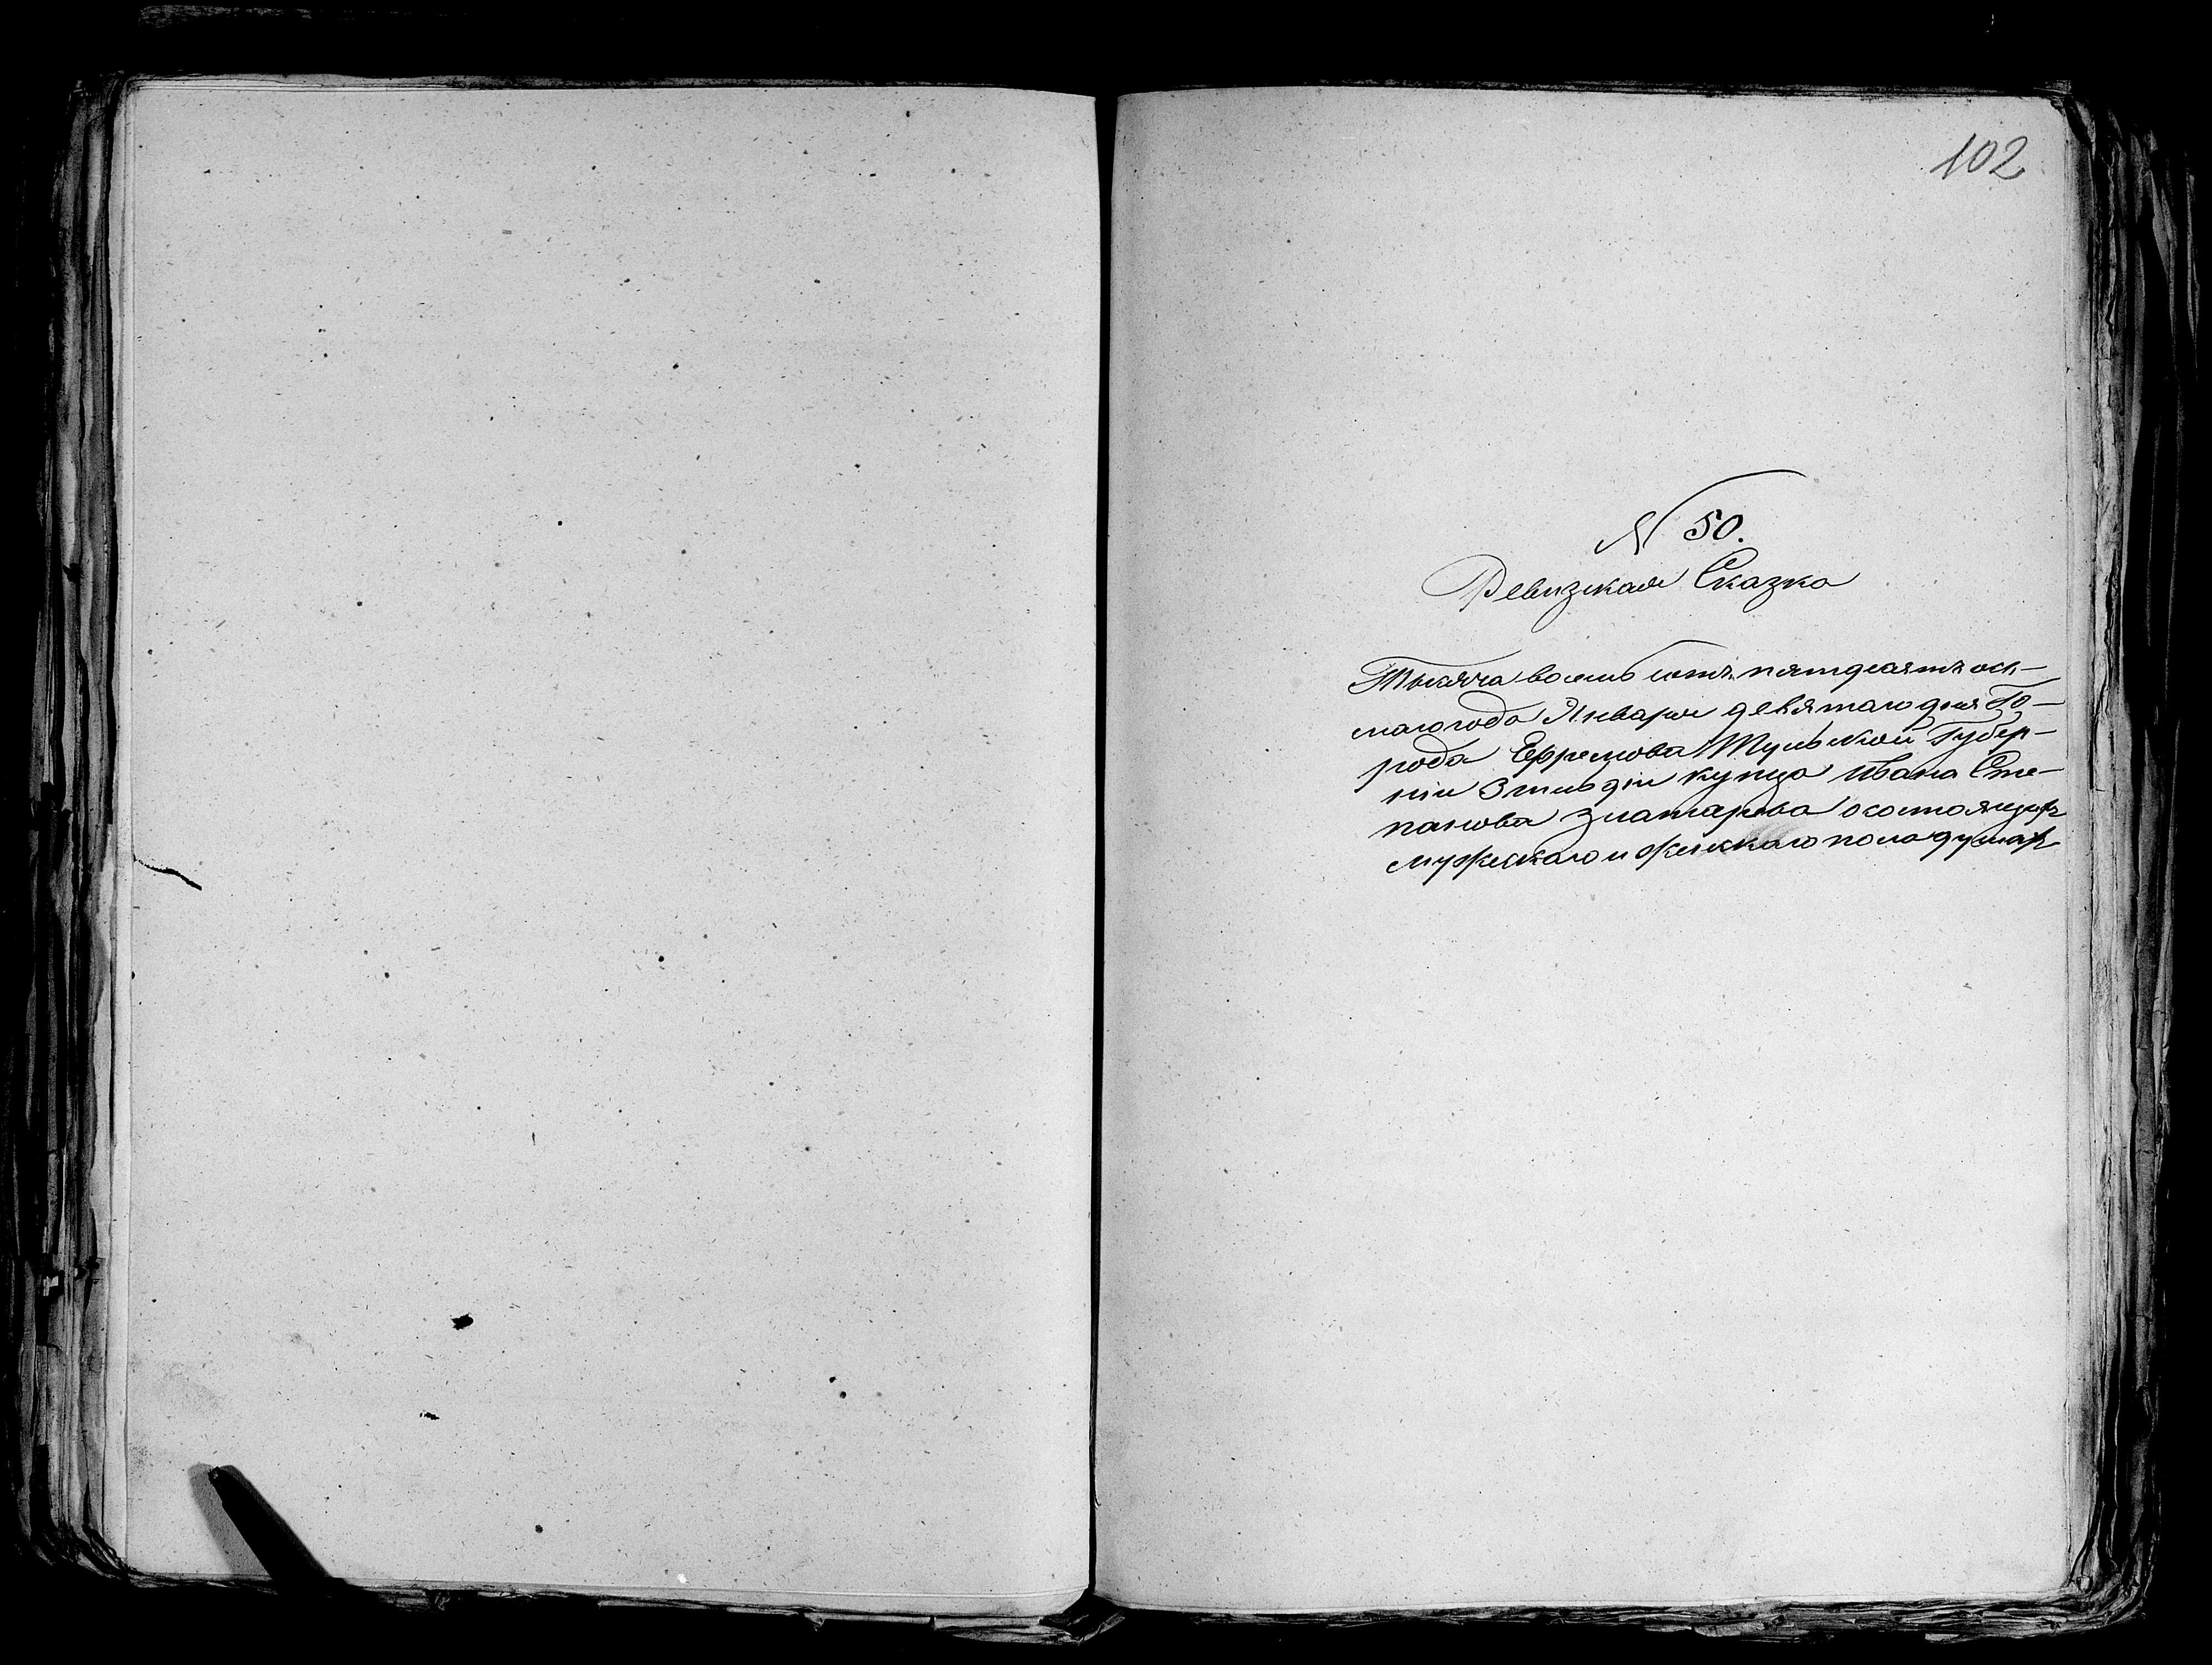 102
N 50.
Ревизская Сказка
Тысяча восемь сотъ пятдесятъ ось-
маго года Января девятаго дня Го-
рода Ефремова Тульской Губер-
ніи 3 гильдіи купца Ивана Сте-
панова Златарева о состоящихъ
мужескаго и женскаго пола душахъ